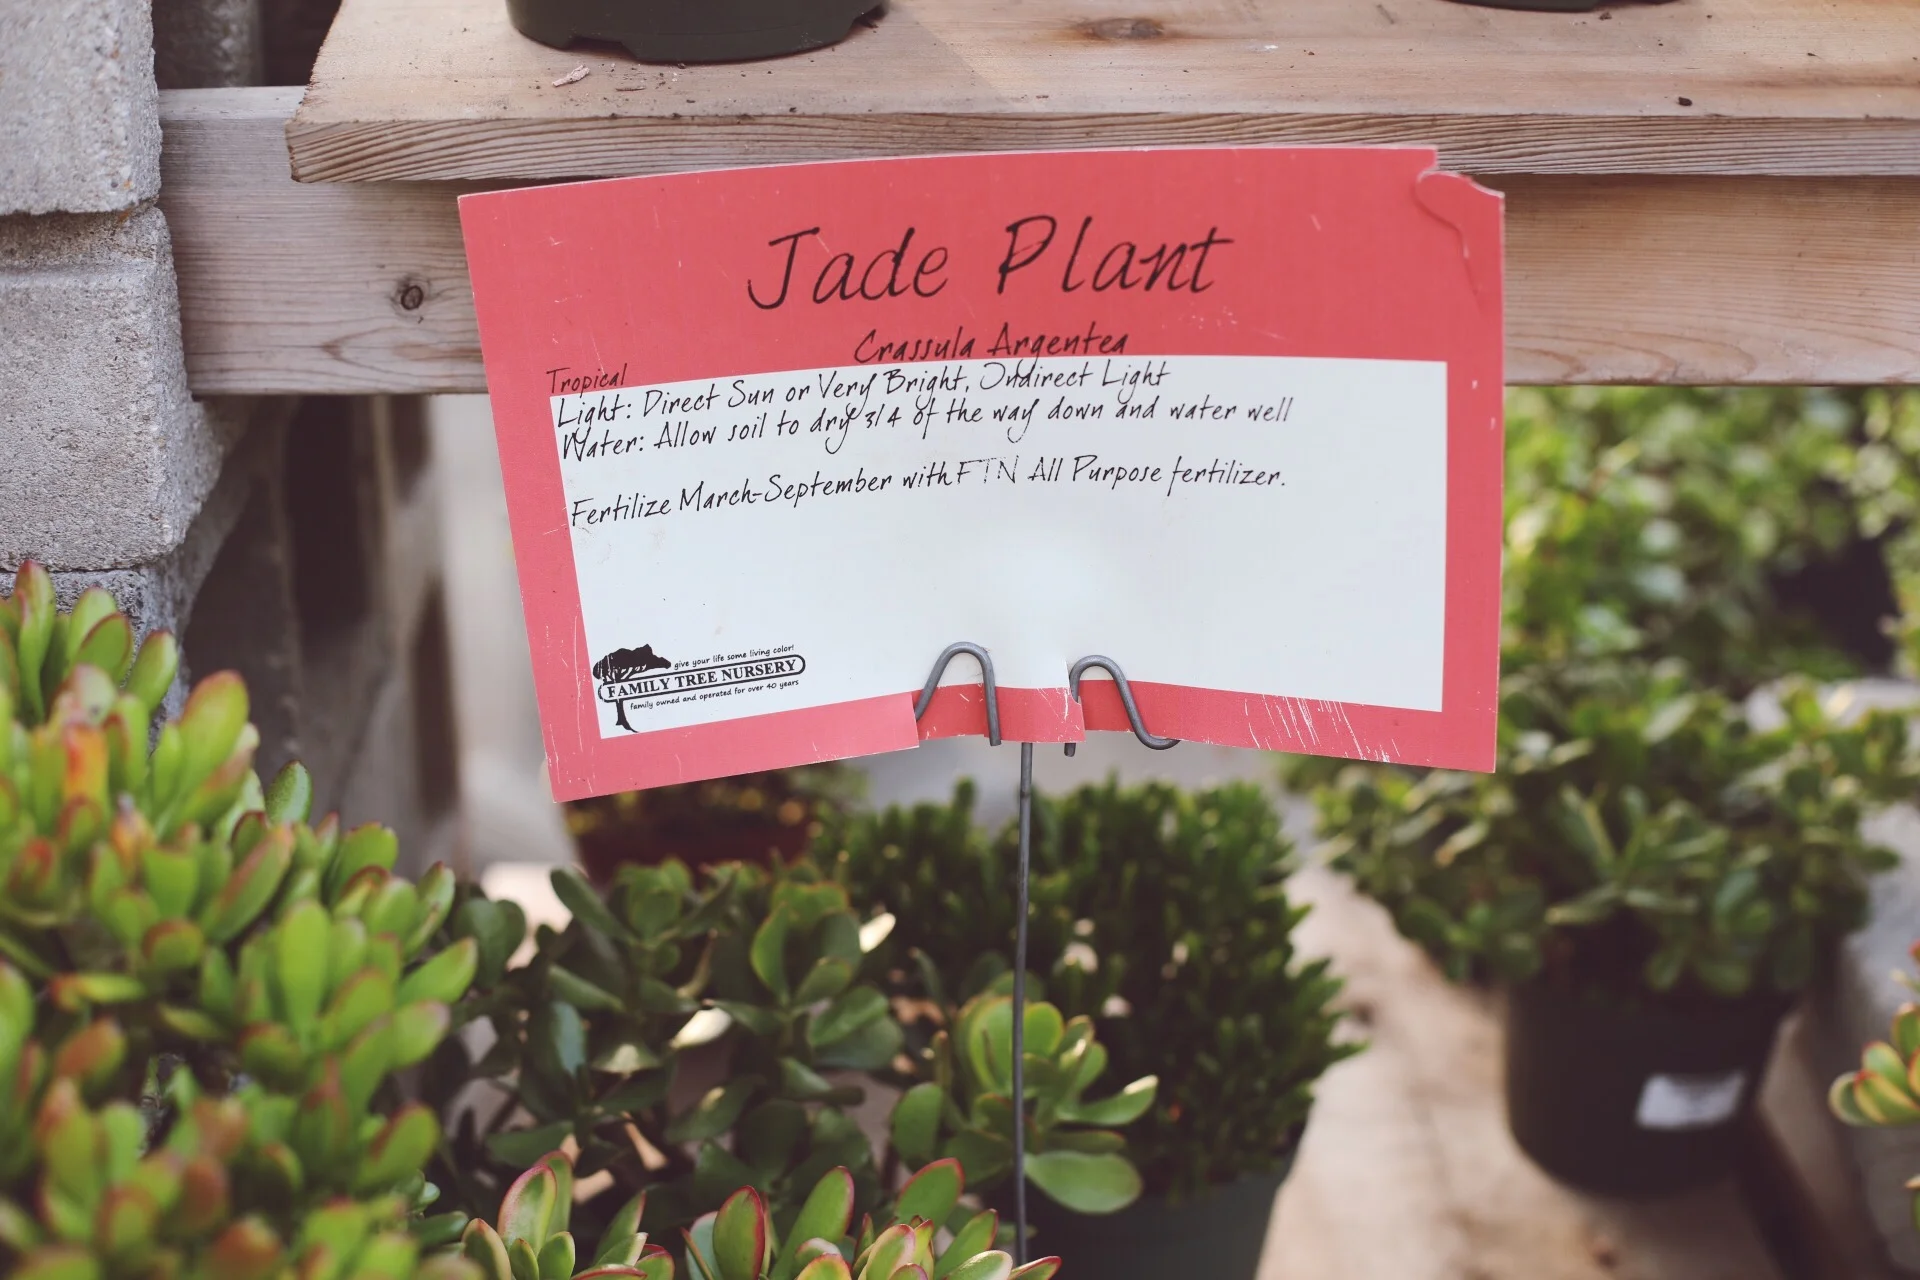 Jade Plant
Crassula Argentea
Tropical
Light: Direct Sun or Very Bright, Indirect Light
Water: Allow soil to dry 3/4 of the way down and water well
Fertilize March-September with FTN All Purpose fertilizer.
give your life some living color!
FAMILY TREE NURSERY
family owned and operated for over 40 years